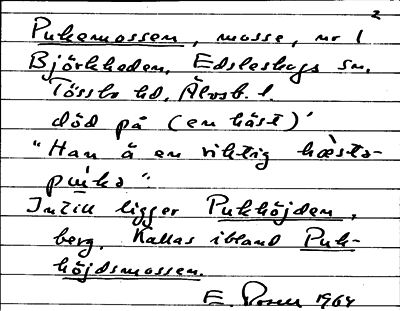 2
Pukemossen, mosse, nr 1
Björkheden, Edsleskogs sn,
Tössbo hd, Älvsb. l.
död på (en häst)'
"Han å en riktig hæsta-
puka".
Intill ligger Pukhöjden,
berg. Kallas ibland Puk-
höjdsmossen.
E. 1964